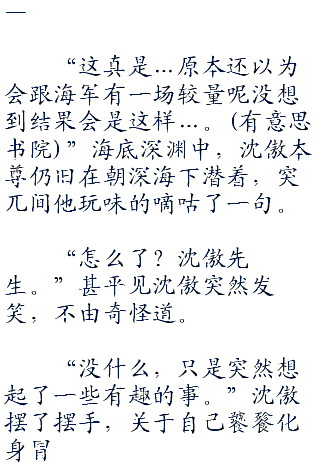 一
“这真是...原本还以为
会跟海军有一场较量呢没想
到结果会是这样...。(有意思
书院)”海底深渊中，沈傲本
尊仍旧在朝深海下潜着，突
兀间他玩味的嘀咕了一句。
“怎么了？沈傲先
生。”甚平见沈傲突然发
笑，不由奇怪道。
“没什么，只是突然想
起了一些有趣的事。”沈傲
摆了摆手，关于自己饕餮化
身冒